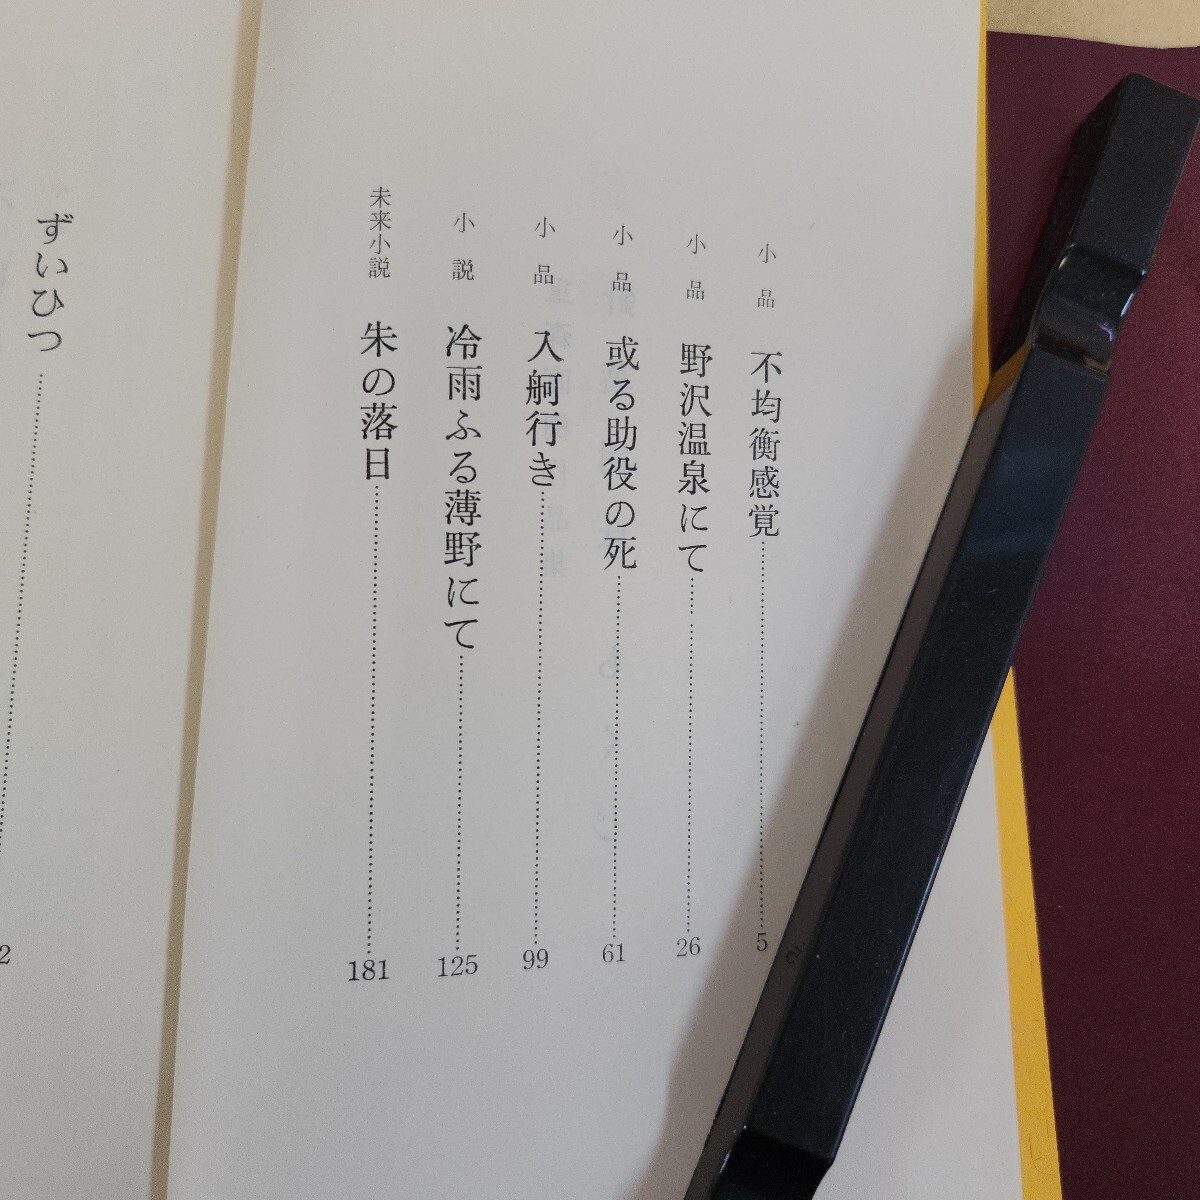 小品 不均衡感覚 5
小品 野沢温泉にて 26
小品 或る助役の死 61
小品 入舸行き 99
小説 冷雨ふる薄野にて 125
未来小説 朱の落日 181
ずいひつ